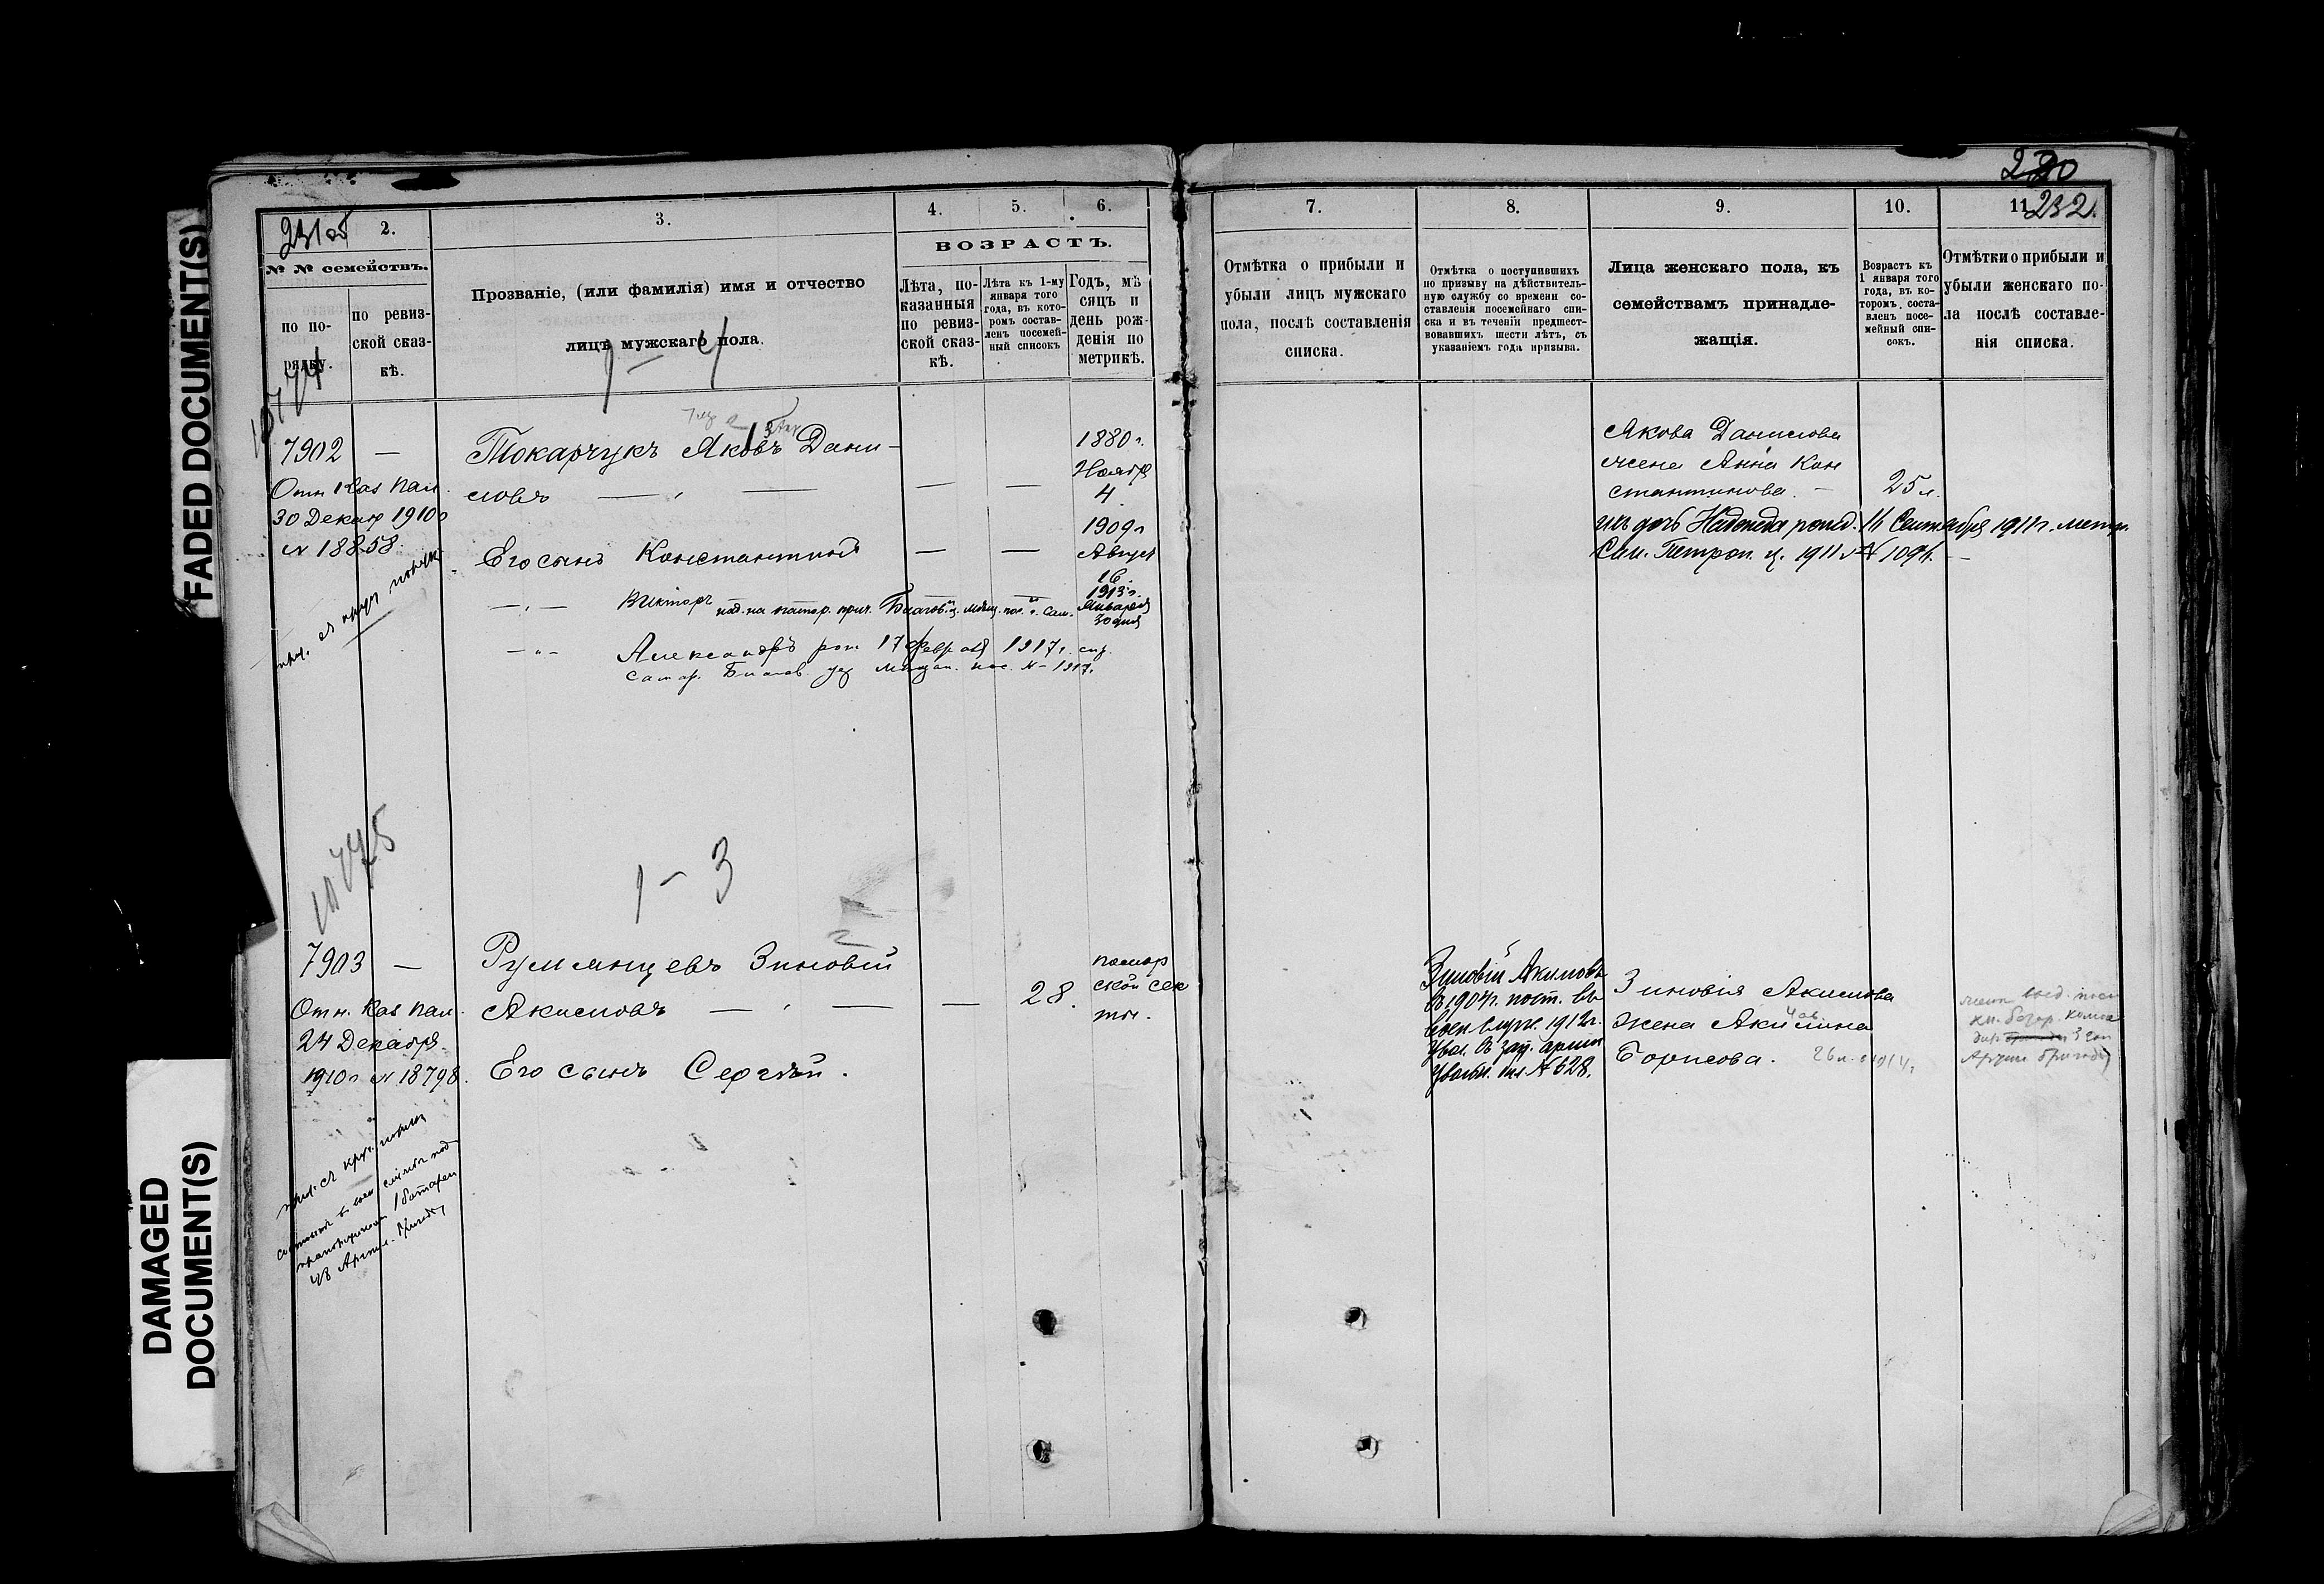 FADED DOCUMENT(S)
DAMAGED
DOCUMENT(S)
231об
2.
3.
4.
5.
6.
№ № семействъ.
по по-
рядку.
по ревиз-
ской сказ-
кѣ.
Прозваніе, (или фамилія) имя и отчество
лицъ мужскаго пола.
1 — 4
ВОЗРАСТЪ.
Лѣта, по-
казанныя
по ревиз-
ской сказ-
кѣ.
Лѣта къ 1-му
января того
года, въ кото-
ромъ состав-
ленъ посемей-
ный списокъ
Годъ, мѣ
сяцъ и
день рож-
денія по
метрикѣ.
10774
7902 —
Отн Каз Пал.
30 Декаб 1910 г
№ 18858.
Токарчукъ Яковъ Дани-
ловъ — — — —
1880 г.
Ноября
4.
Его сынъ Константинъ — —
1909 г
Август
16.
— „ — Викторъ
1913 г.
Января
30 дня
— „ — Александръ род 17 Февраля 1917 г.
10775
1 — 3
7903 —
Отн. Каз Пал.
24 Декабря
1910 г № 18798.
Румянцевъ Зиновій
Акимовъ — — — 28.
Его сынъ Сергѣй.
230
7.
8.
9.
10.
11.
232.
Отмѣтка о прибыли и
убыли лицъ мужскаго
пола, послѣ составленія
списка.
Отмѣтка о поступившихъ
по призыву на дѣйствитель-
ную службу со времени со-
ставленія посемейнаго спи-
ска и въ теченіи предшест-
вовавшихъ шести лѣтъ, съ
указаніемъ года призыва.
Лица женскаго пола, къ
семействамъ принадле-
жащія.
Возрастъ къ
1 января того
года, въ ко-
торомъ соста-
вленъ посе-
мейный спи-
сокъ.
Отмѣтки о прибыли и
убыли женскаго по-
ла послѣ составле-
нія списка.
Якова Данилова
жена Анна Кон
стантинова. — 25 л.
ихъ дочь Надежда рожд. 14 Сентября 1911 г. метр.
Сам. Петроп. ц. 1911 г № 1094. —
Зиновій Акимовъ
въ 1904 г. пост. въ
воен службу. 1912 г.
Увол. въ зап. арміи
увольн. бил № 628.
Зиновія Акимова
жена Акилина
Борисова. 26 л.